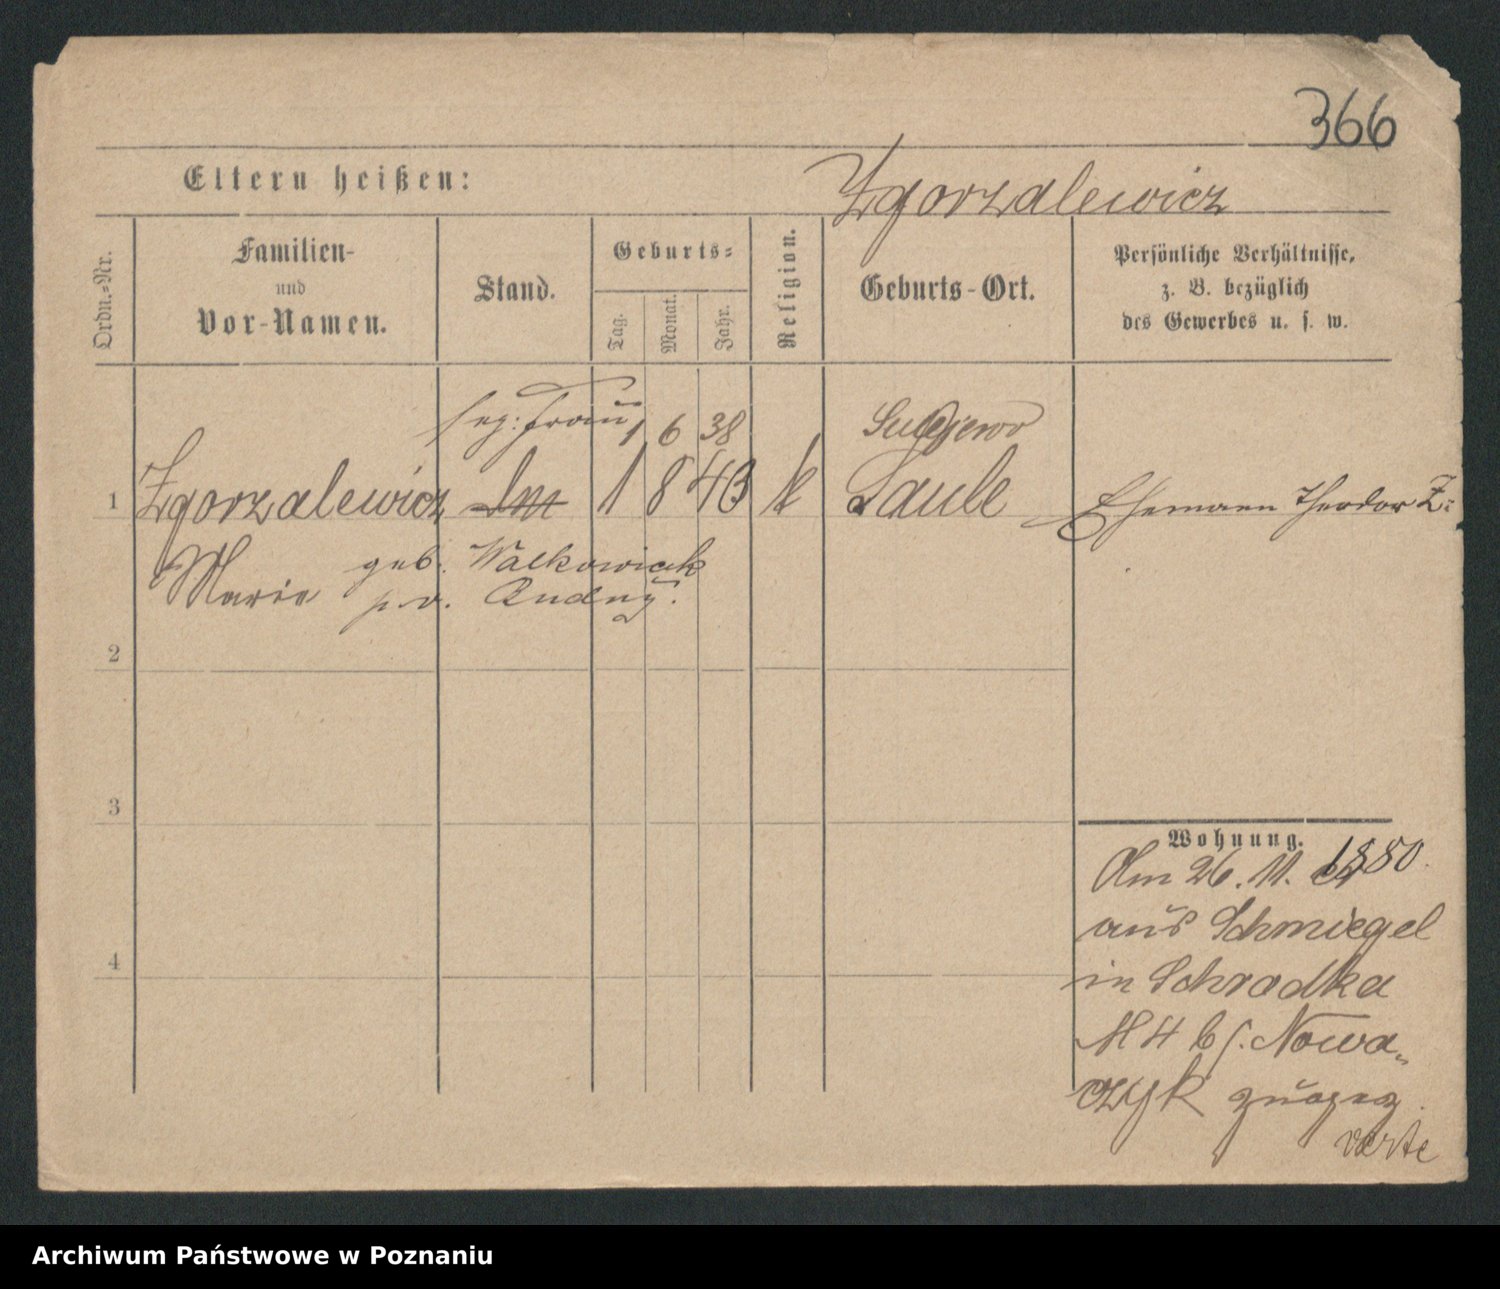 366
Eltern heißen:
Zgorzalewicz
Ordn.-Nr.
Familien-
und
Vor-Namen.
Stand.
Geburts-
Tag.
Monat.
Jahr.
Religion.
Geburts-Ort.
Persönliche Verhältnisse,
z. B. bezüglich
des Gewerbes u. s. w.
Frau 1 6 38
1 Zgorzalewicz 1 8 43 k Saule Ehemann Theodor Z:
Maria geb. Walkowiak
p. v.
2
3
4
Wohnung.
Am 26. 11. 1880.
aus Schmiegel
in Schrodka
N 4 b/. Nowa-
czyk zugez.
verte
Archiwum Państwowe w Poznaniu